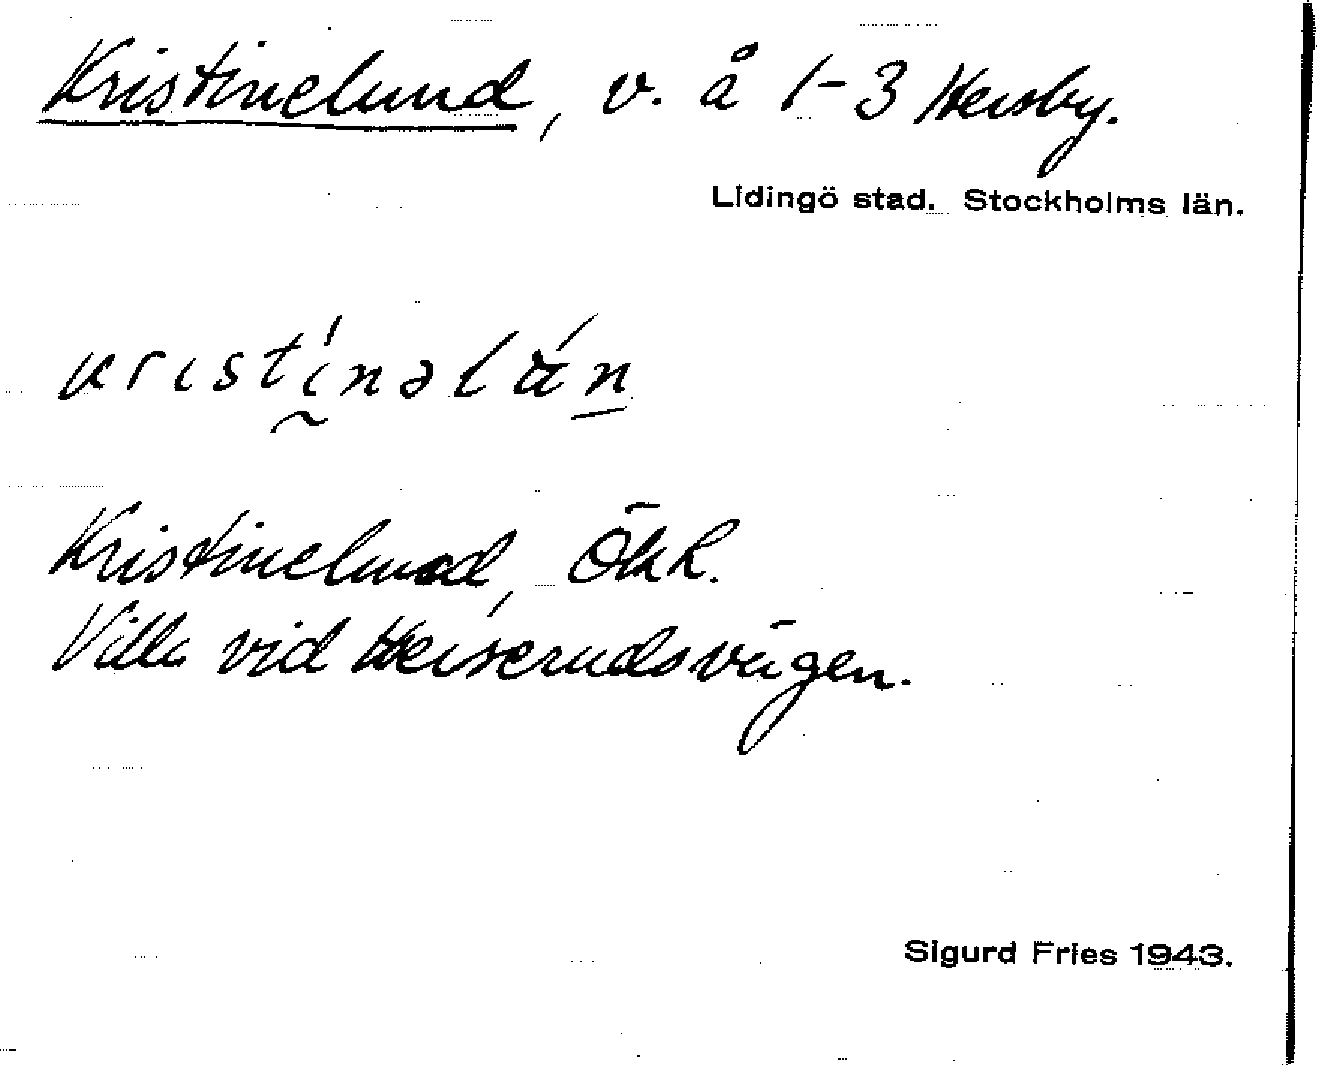 Kristinelund, v. å 1-3 Hersby.
Lidingö stad. Stockholms län.
Kristinelund, ÖkR.
Villa vid Herserudsvägen.
Sigurd Fries 1943.